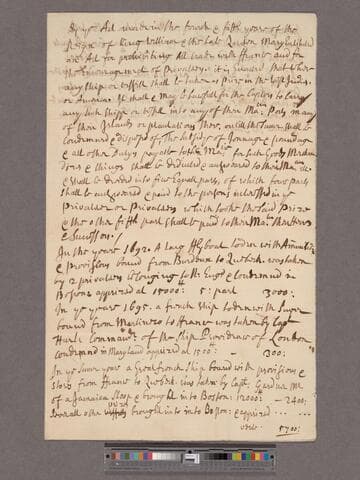 By an Act made in the fourth & fifth years of the
Reigne of King William & the late Queen Mary Entituled
an Act for prohibiting all trade with France and for
the Encouragement of Privateers: it is Enacted that where
any ship or vessell shall be taken as Prize in the West Indies
or America It shall & may be lawfull for the Captors to Carry
any such shipp or vessell into any of their Ma:ties Ports in any
of their Islands or plantations there, untill the same shall be
Condemned & disposed of, the Subsidy of Tonnage & poundage
& all other Dutys payable to their Ma:ties for such Goods Merchan
dizes & things shall be deducted & answered to their Ma:ties
& shall be divided into five Equall parts, of which four parts
shall be and paid to the persons interested in
Privateer or Privateers which tooke the said Prize
& the other fifth part shall be paid to their Ma:ties
&
In the yeare 1692. A large ffly boat loden with
& provisions bound from Burdeux to Quebeck was taken
by 2 privateers belonging to & Condemned in
Boston apprized at 15000: 5: part 3000:
In ye yeare 1695. a french ship loden with Sugar
bound from Martineco to France was taken by Cap:
of the ship Providence of London
Condemned in Maryland apprized at 1500: — 300:
In ye same year a Great french ship bound with provisions &
stores from France to Quebeck. was taken by Capt:
of a Jamaica sloop & brought into Boston: 12000: — 2400:
Severall other brought into Boston: & apprized
5700: